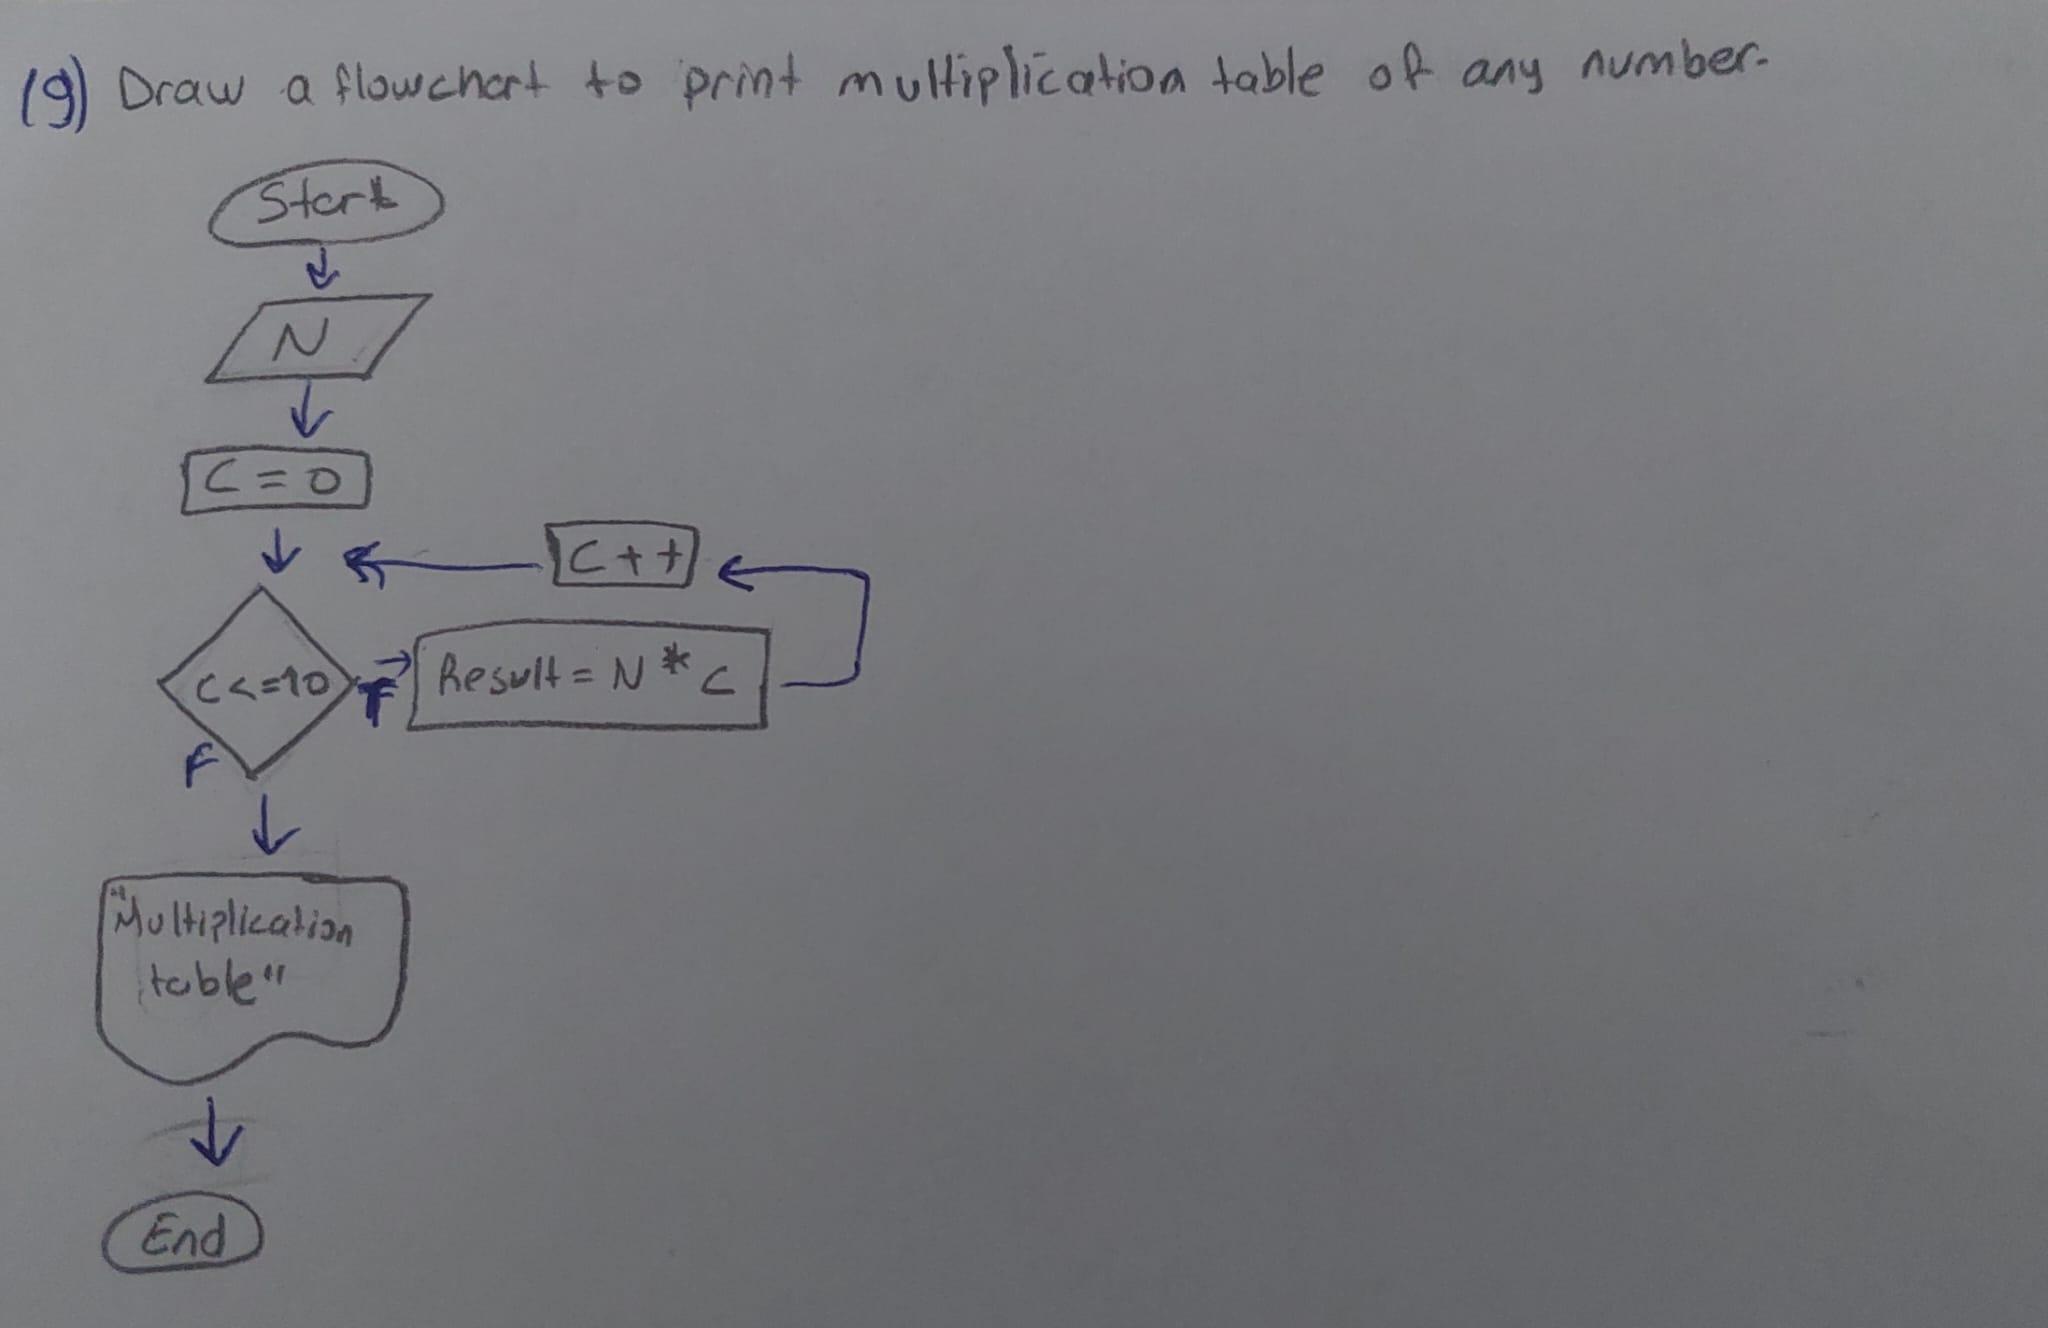 (9) Draw a flowchart to print multiplication table of any number.
Start
N
C = 0
C + +
C <= 10
T
Result = N * C
F
"Multiplication
table"
End